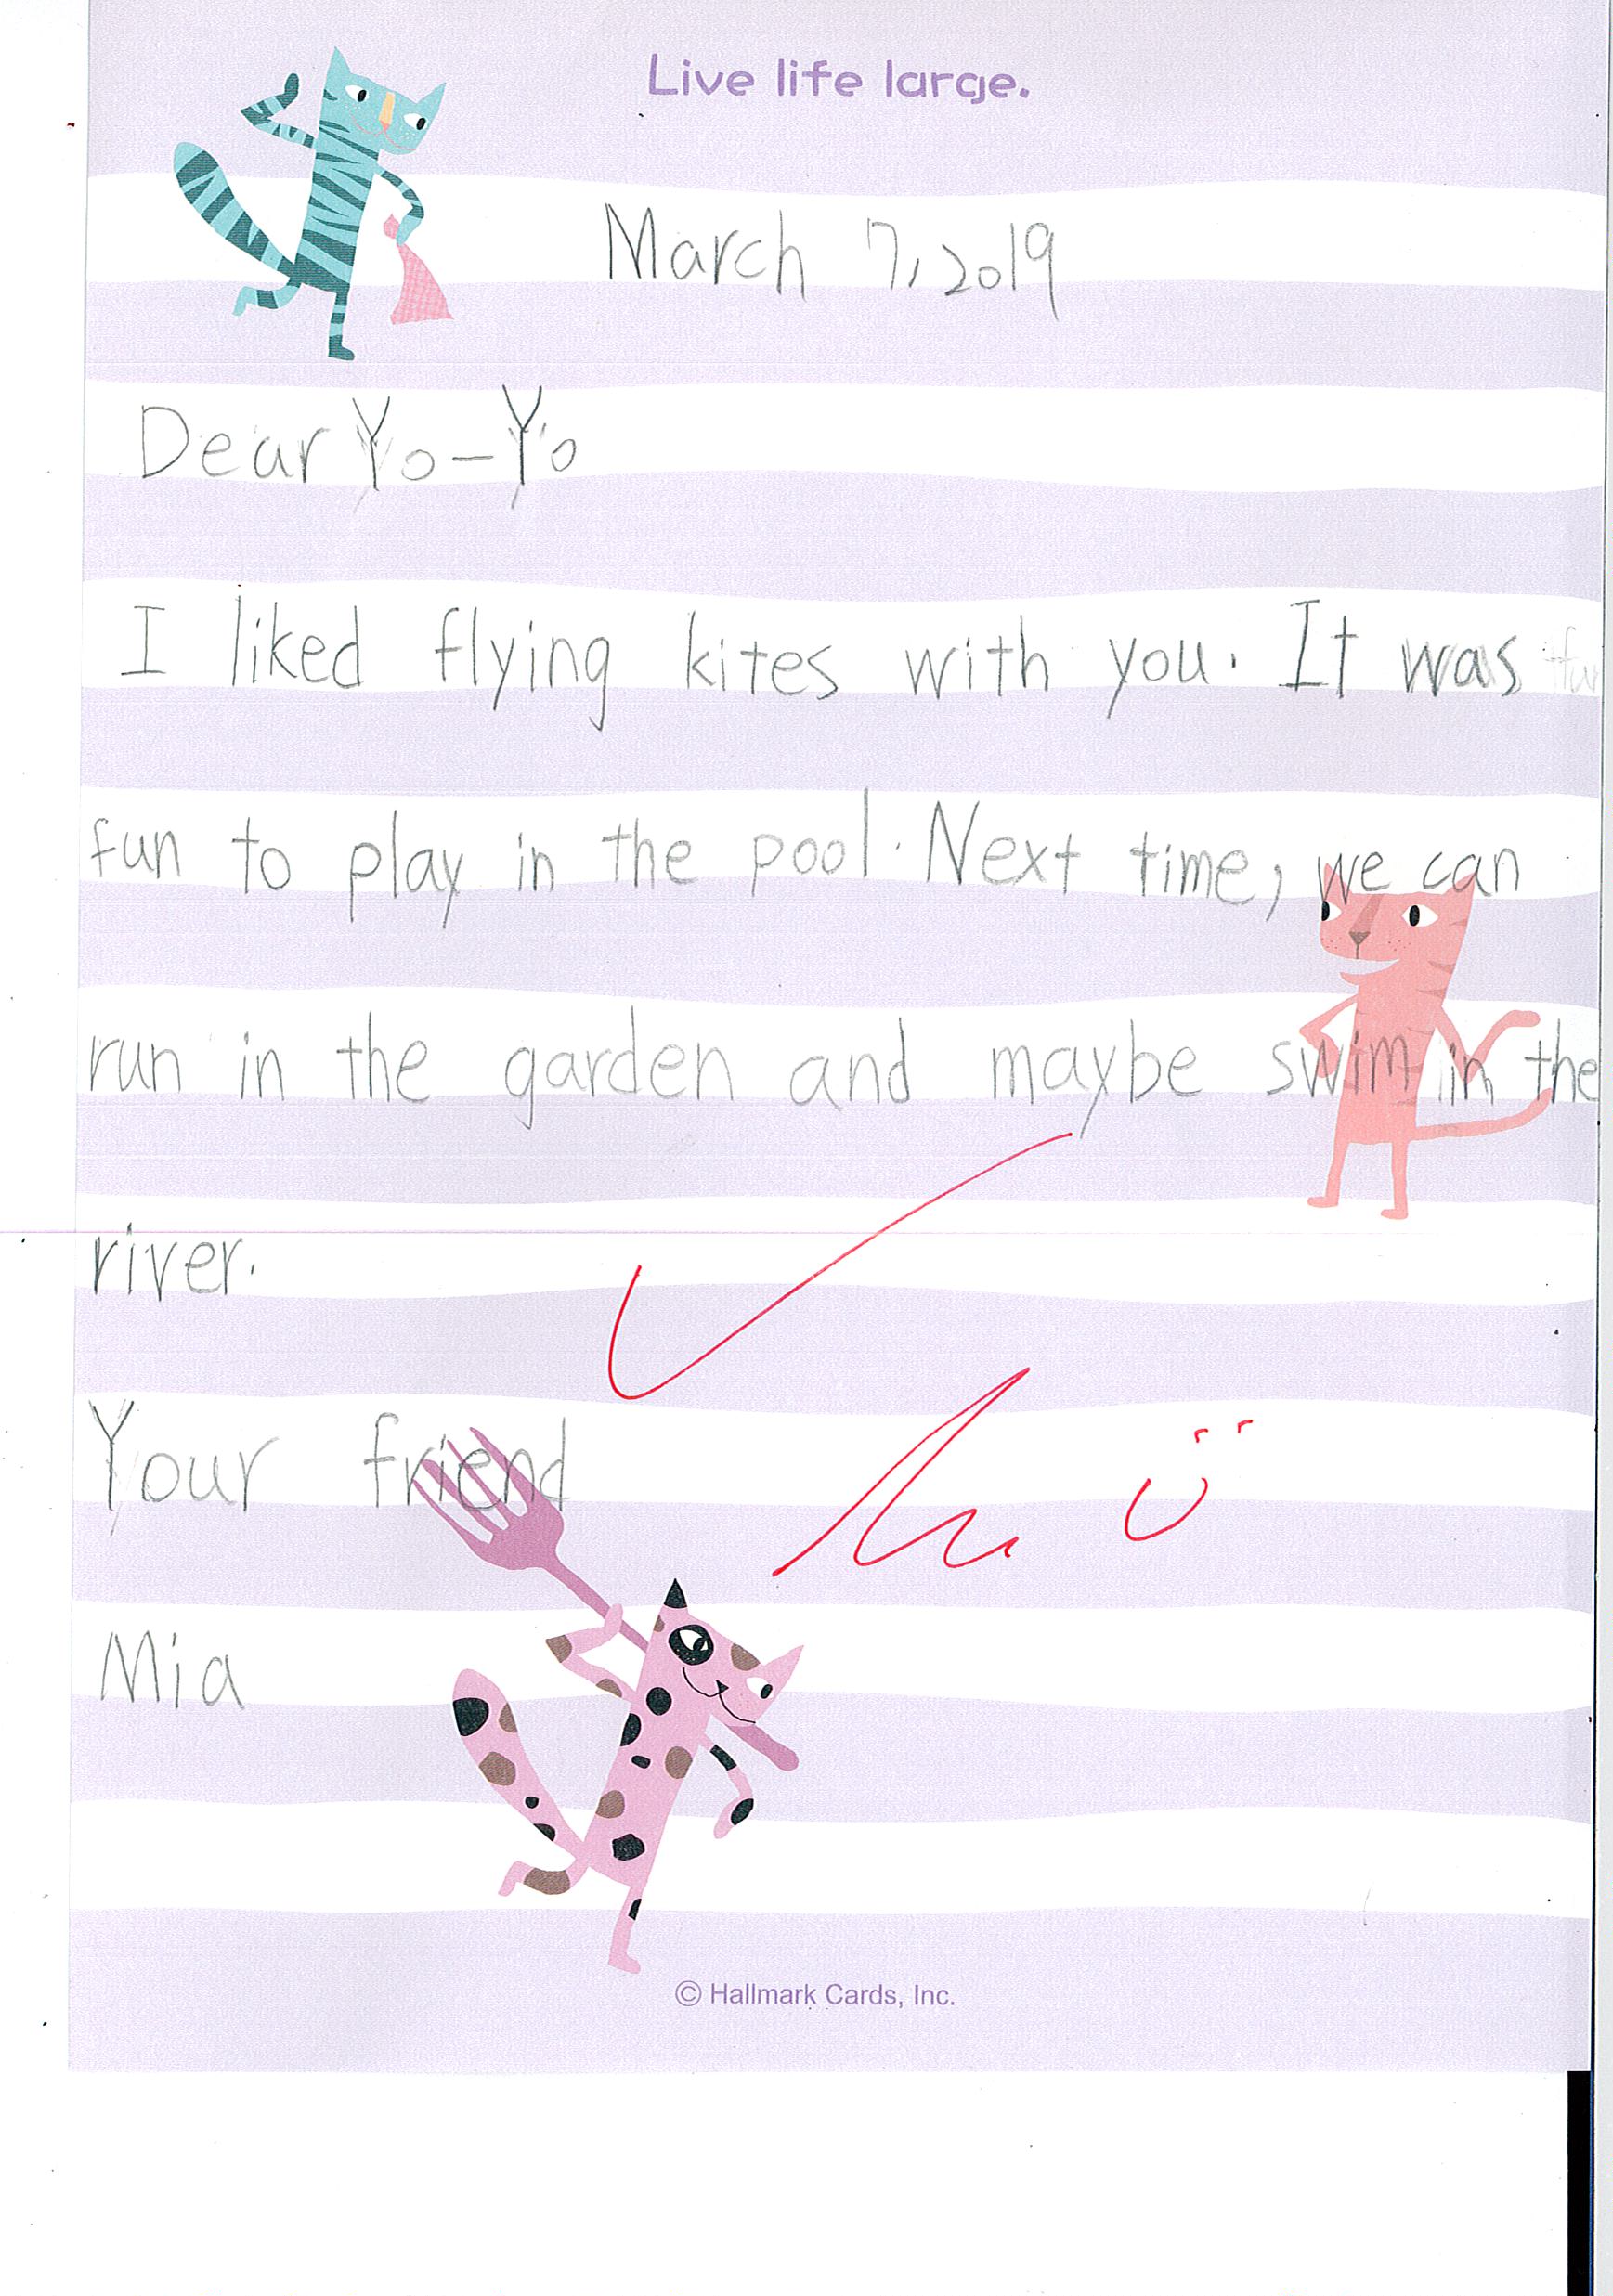 Live life large.
March 7, 2019
Dear Yo-Yo
I liked flying kites with you. It was
fun to play in the pool. Next time, we can
run in the garden and maybe swim in the
river.
Your friend
Mia
© Hallmark Cards, Inc.